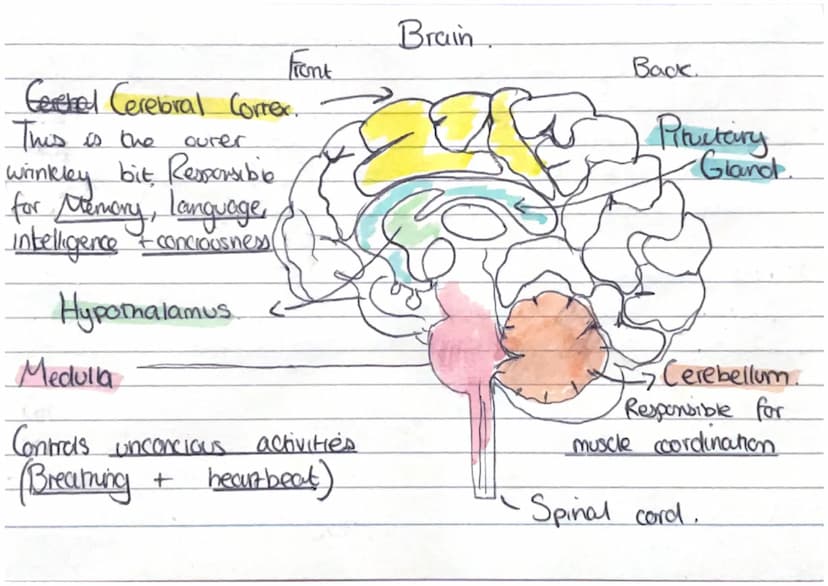 Brain.
Front
Back.
Cerebral Correx.
This is the ourer
wrinkley bit. Responsible
for Memory, language,
intelligence + conciousness
Pituctary
Gland.
Hypothalamus
Medulla
Cerebellum.
Responsible for
muscle coordination
Controls unconcious activities
(Breathing + heartbeat)
Spinal cord.